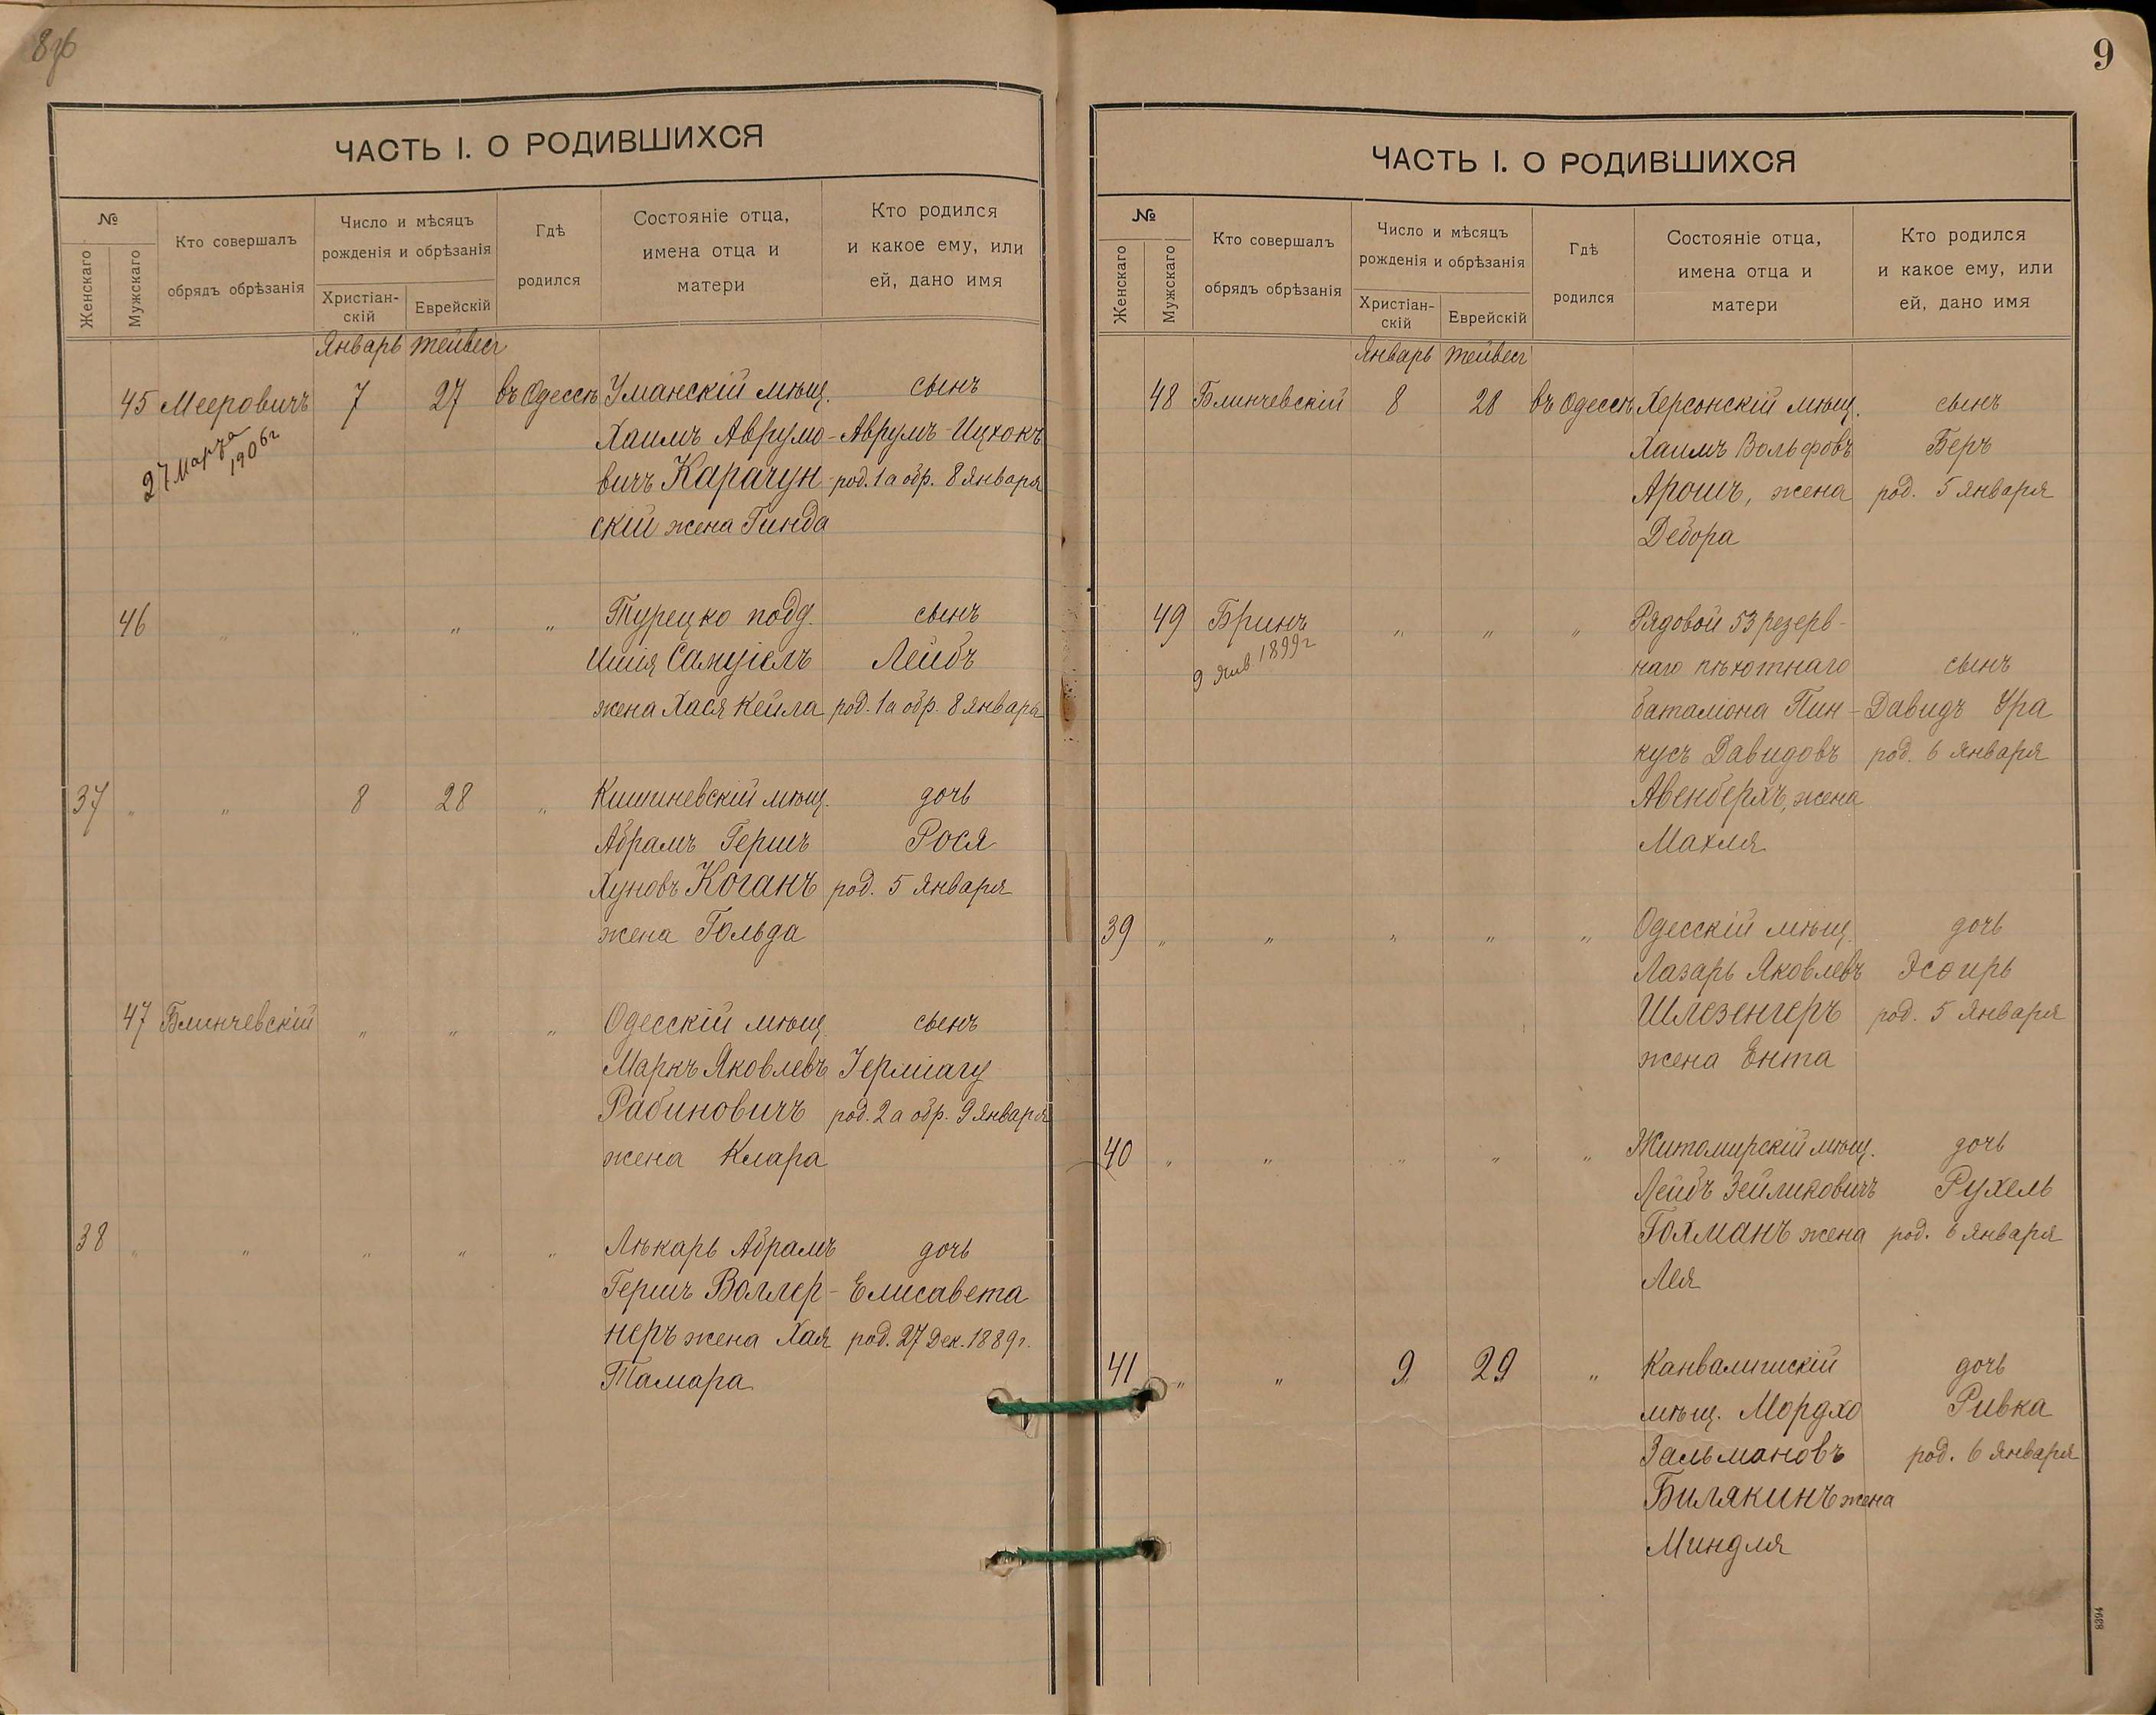 8об
ЧАСТЬ I. О РОДИВШИХСЯ
№
Женскаго
Мужскаго
Кто совершалъ
обрядъ обрѣзанія
Число и мѣсяцъ
рожденія и обрѣзанія
Христіан-
скій
Еврейскій
Гдѣ
родился
Состояніе отца,
имена отца и
матери
Кто родился
и какое ему, или
ей, дано имя
Январь Тейвес
45 Мееровичъ 7 27 въ Одессѣ Уманскій мѣщ. сынъ
27 Марта 1906г
Хаимъ Аврумо- Аврумъ-Ицхокъ
вичъ Карачун- род. 1 а обр. 8 Января
скій жена Гинда
46 „ „ „ „ Турецко подд. сынъ
Самуіелъ Лейбъ
жена Хася Кейла род. 1 а обр. 8 Января
37 „ „ 8 28 „ Кишиневскій мѣщ. дочь
Абрамъ Гершъ Рося
Хуновъ Коганъ род. 5 Января
жена Гольда
47 Блинчевскій „ „ „ Одесскій мѣщ. сынъ
Маркъ Яковлевъ Іерміагу
Рабиновичъ род. 2 а обр. 9 Января
жена Клара
38 „ „ „ „ „ Лѣкарь Абрамъ дочь
Гершъ Воллер- Елисавета
неръ жена Хая род. 27 Дек. 1889г.
Тамара
9
ЧАСТЬ I. О РОДИВШИХСЯ
№
Женскаго
Мужскаго
Кто совершалъ
обрядъ обрѣзанія
Число и мѣсяцъ
рожденія и обрѣзанія
Христіан-
скій
Еврейскій
Гдѣ
родился
Состояніе отца,
имена отца и
матери
Кто родился
и какое ему, или
ей, дано имя
Январь Тейвес
48 Блинчевскій 8 28 въ Одессѣ Херсонскій мѣщ. сынъ
Хаимъ Вольфовъ Беръ
Арошъ, жена род. 5 Января
Дебора
49 Бринъ „ „ „ Рядовой 53 резерв-
9 Янв 1899г
наго пѣхотнаго сынъ
баталіона Пин- Давидъ Ура
кусъ Давидовъ род. 6 Января
Авенберхъ, жена
Махля
39 „ „ „ „ „ Одесскій мѣщ. дочь
Лазарь Яковлевъ Эсѳирь
Шлезенгеръ род. 5 Января
жена Ента
40 „ „ „ „ „ Житомирскій мѣщ. дочь
Лейбъ Зейликовичъ Рухель
Гохманъ жена род. 6 Января
Лея
41 „ „ 9 29 „ дочь
мѣщ. Мордхо Ривка
Зальмановъ род. 6 Января
Билякинъ жена
Миндля
8394